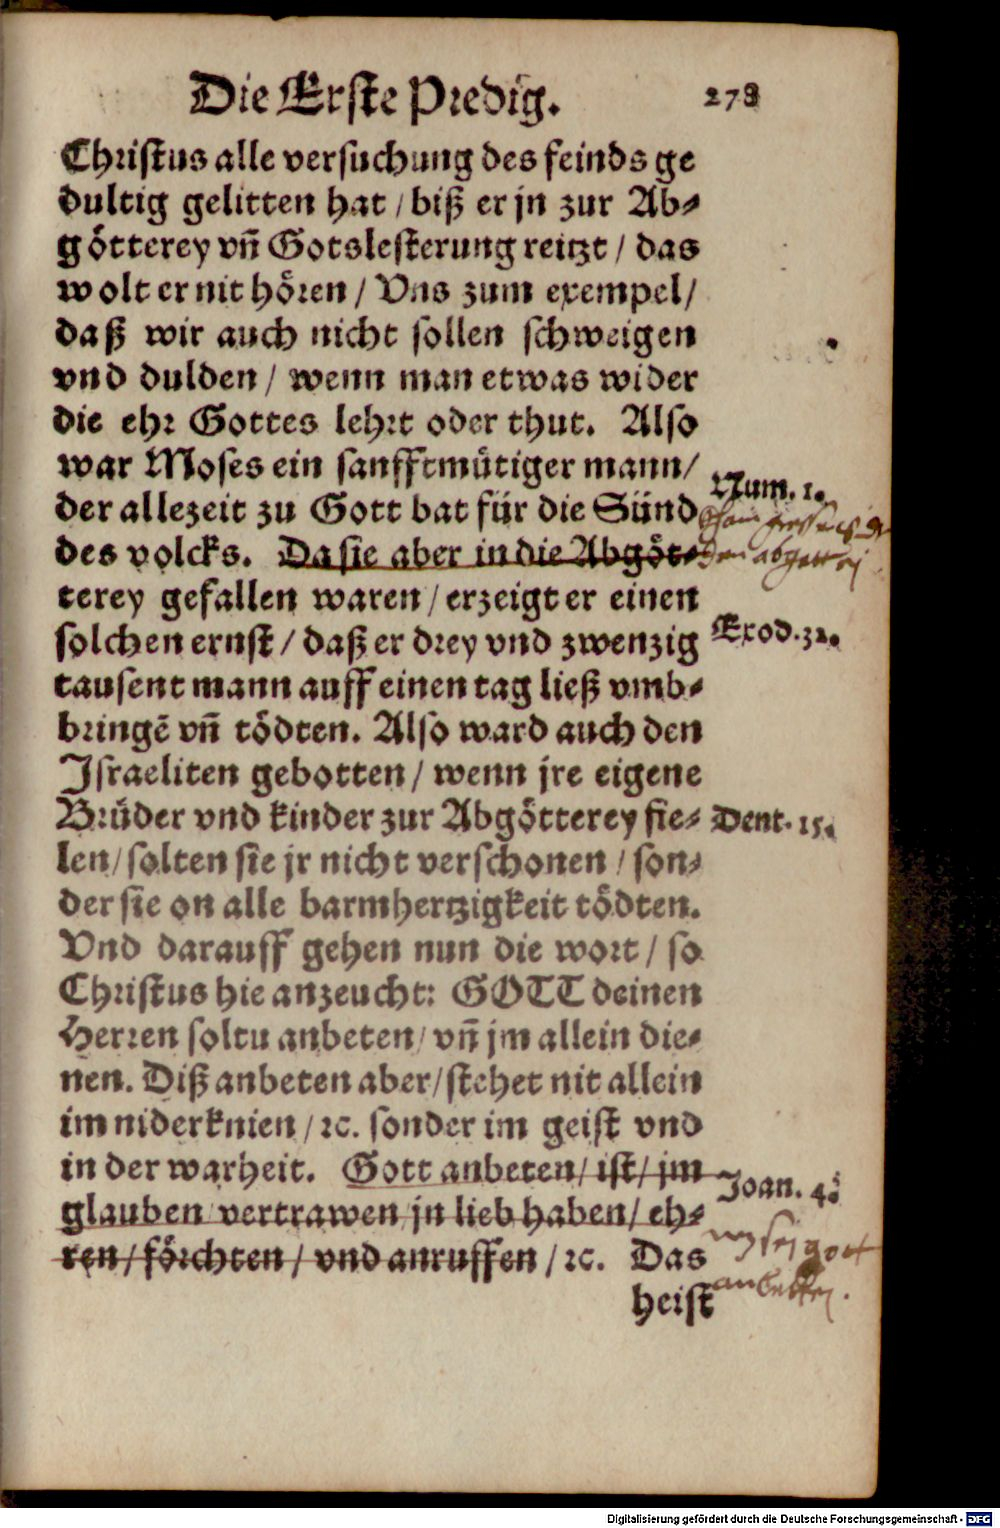 Die Erste Predig. 273
Christus alle versuchung des feinds ge
dultig gelitten hat / biß er jn zur Ab⸗
götterey vñ Gotslesterung reitzt / das
wolt er nit hören / Vns zum exempel /
daß wir auch nicht sollen schweigen
vnd dulden / wenn man etwas wider
die ehr Gottes lehrt oder thut. Also
war Moses ein sanfftmütiger mann /
Num. 1.
der allezeit zu Gott bat für die Sünd
des volcks. Da sie aber in die Abgöt⸗
terey gefallen waren / erzeigt er einen
solchen ernst / daß er drey vnd zwenzig
Exod. 32.
tausent mann auff einen tag ließ vmb⸗
bringē vñ tödten. Also ward auch den
Israeliten gebotten / wenn jre eigene
Brüder vnd kinder zur Abgötterey fie⸗
Deut. 15.
len / solten sie jr nicht verschonen / son⸗
der sie on alle barmhertzigkeit tödten.
Vnd darauff gehen nun die wort / so
Christus hie anzeucht: GOTT deinen
Herren soltu anbeten / vñ jm allein die⸗
nen. Diß anbeten aber / stehet nit allein
im niderknien / ꝛc. sonder im geist vnd
in der warheit. Gott anbeten / ist / jm
Joan. 4.
glauben / vertrawen / jn lieb haben / eh⸗
ren / förchten / vnd anruffen / ꝛc. Das
heist
Digitalisierung gefördert durch die Deutsche Forschungsgemeinschaft - DFG